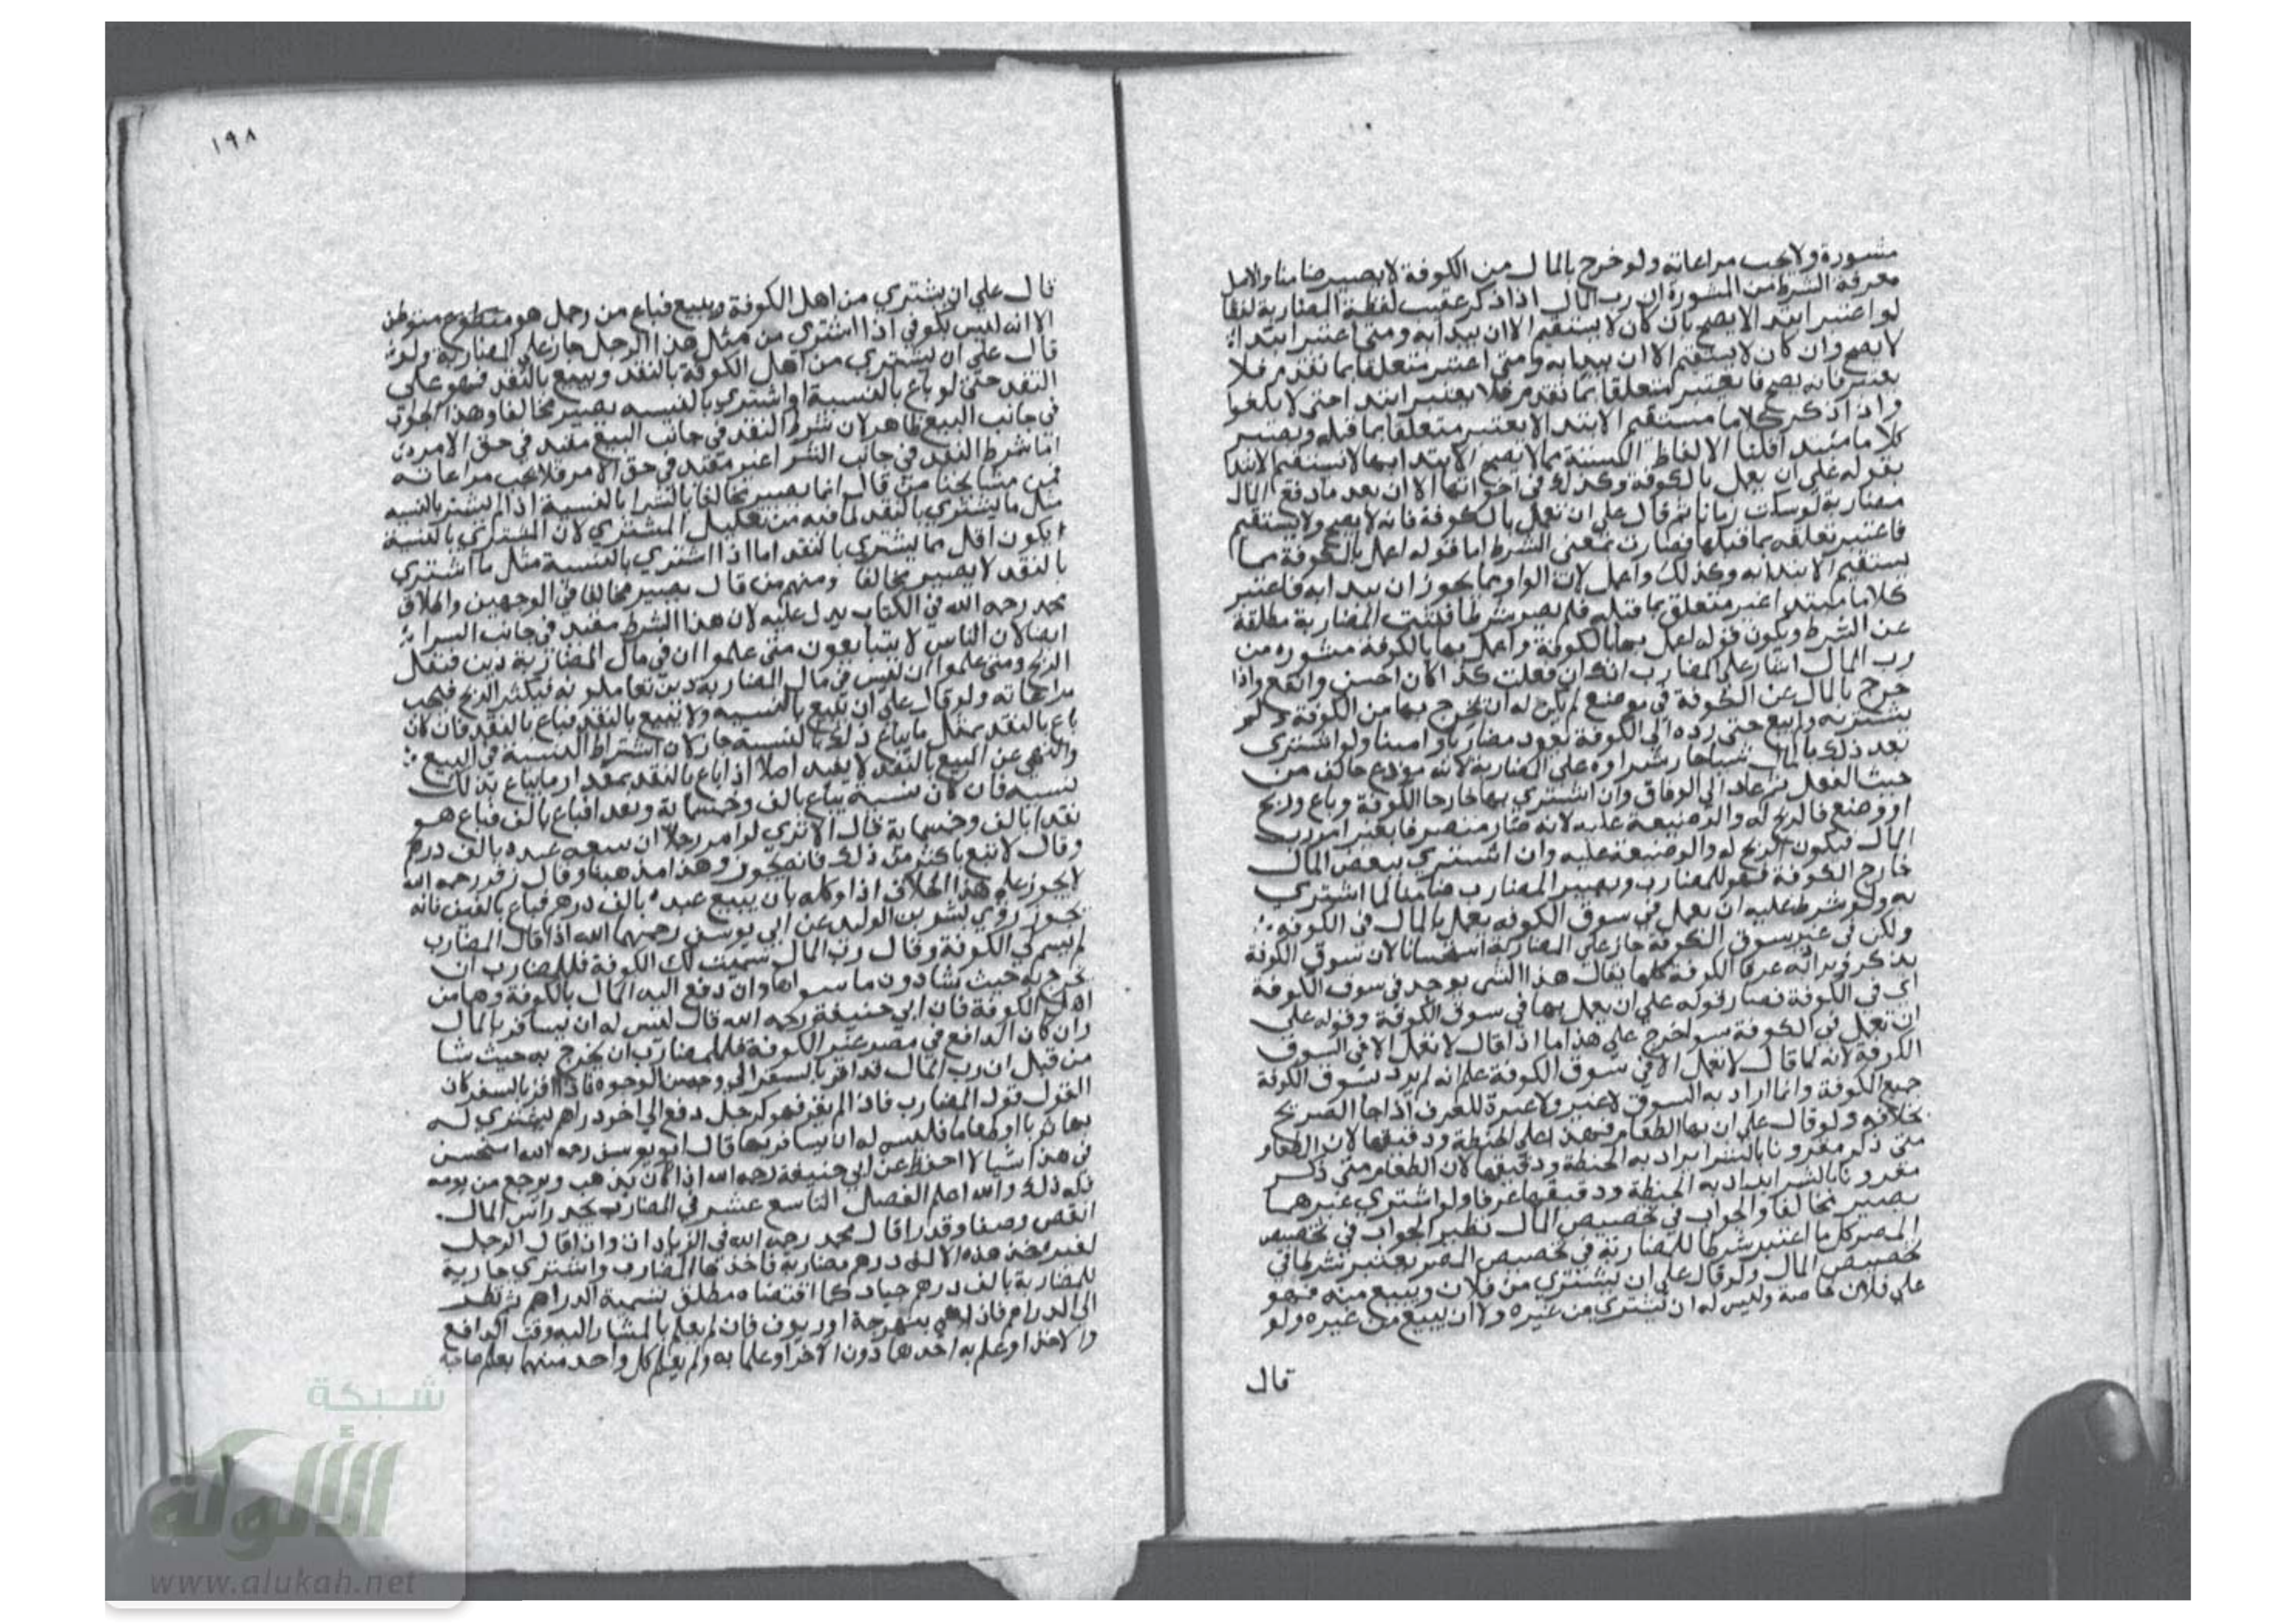 مشورة ولا يجب مراعاته ولو خرج بالمال من الكوفة لا يصير ضامنا والاصل
معرفة الشرط من المشورة ان رب المال اذا ذكر عقيب لفظة المضاربة لفظا
لو اعتبر ابتدا لا يصح بان كان لا يستقيم الا ان يبدا به ومتى اعتبر ابتدا
لا يصح وان كان لا يستقيم الا ان يبدا به ومتى اعتبر متعلقا بما تقدم فلا
يعتبر فانه يصح فا يعتبر متعلقا بما تقدم فلا يعتبر ابتدا حتى لا يلغوا
واذا ذكر كلاما مستقيم الابتدا لا يعتبر متعلقا بما قبله ويعتبر
كلاما مبتدا قلنا الالفاظ الستة مما لا يصح الابتدا بها لا يستقيم الابتدا
بقوله على ان يعمل بالكوفة وكذلك في اخواتها الا ان بعد ما دفع المال
مضاربة لو سكت زمانا ثم قال على ان تعمل بالكوفة فانه لا يصح ولا يستقيم
فاعتبر تعلقه بما قبلها فصارت بمعنى الشرط اما قوله اعمل بالكوفة مما
يستقيم الابتدا به وكذلك واعمل لان الواو مما يجوز ان يبدا به فاعتبر
كلاما مبتدا غير متعلق بما قبله فلم يصر شرطا فبقيت المضاربة مطلقة
عن الشرط ويكون قوله اعمل بها بالكوفة واعمل بها بالكوفة مشوره من
رب المال اشار على المضارب انك ان فعلت كذا كان احسن وانفع واذا
خرج بالمال عن الكوفة في موضع لم يكن له ان يخرج بها من الكوفة ولو
يشتر به ولا يبع حتى رده الى الكوفة يعود مضاربا وامينا ولو اشترى
بعد ذلك بالمال شيا جاز شراوه على المضاربة لانه مودع خالف من
حيث الفعل ثم عاد الى الوفاق وان اشترى بها خارجا الكوفة وباع وربح
او وضع فالربح له والوضيعة عليه لانه صار متصرفا بغير امر رب
المال فيكون الربح له والوضيعة عليه وان اشترى ببعض المال
خارج الكوفة فهو للمضارب ويصير المضارب ضامنا لما اشترى
به ولو شرط عليه ان يعمل في سوق الكوفه يعمل بالمال في الكوفه
ولكن في غير سوق الكوفة جاز على المضاربة استحسانا لان سوق الكوفة
يذكر ويراد به عرفا الكوفة كلها يقال هذا الشى يوجد في سوق الكوفة
اي في الكوفة فصار قوله على ان يعمل بها في سوق الكوفة وقوله على
ان تعمل في الكوفة سوا خرج على هذا اما اذا قال لا تعمل الا في السوق
الكوفة لانه لما قال لا تعمل الا في سوق الكوفة علم انه لم يرد بسوق الكوفة
جميع الكوفة وانما اراد به السوق لا غير ولا عبرة للعرف اذا جا الصريح
بخلافه ولو قال على ان بها الطعام فهذا على الحنطة ودقيقها لان الطعام
متى ذكر مقرونا بالشرا يراد به الحنطة ودقيقها لان الطعام متى ذكر
مقرونا بالشرا يراد به الحنطة ودقيقها عرفا ولو اشترى غيرهما
يصير مخالفا والجواب في تخصيص المال نظير الجواب في تخصيص
المصر كل ما اعتبر شرطا للمضاربة في تخصيص المصر يعتبر شرطا في
تخصيص المال ولو قال على ان يشتري من فلان ويبيع منه فهو
على فلان خاصة وليس له ان يشتري من غيره ولا ان يبيع من غيره ولو
قال
١٩٨
قال على ان يشتري من اهل الكوفة ويبيع فباع من رجل هو
الا انه ليس بكوفي اذا اشترى من مثل هذا الرجل جاز على المضاربة ولو
قال على ان يشتري من اهل الكوفة بالنقد ويبيع بالنقد فهو على
النقد حتى لو باع بالنسية او اشترى بالنسيه يصير مخالفا وهذا الجواب
في جانب البيع ظاهر لان شرط النقد في جانب البيع مفيد في حق الامر
اما شرط النقد في جانب الشرا غير مفيد في حق الامر فلا يجب مراعاته
فمن مشايخنا من قال انما يصير مخالفا بالشرا بالنسية اذا لم يشتر بالنسيه
مثل ما يشتري بالنقد لما فيه من تقليل المشتري لان المشترى بالنسية
يكون اقل مما يشتري بالنقد اما اذا اشترى بالنسية مثل ما اشترى
بالنقد لا يصير مخالفا ومنهم من قال يصير مخالفا في الوجهين واطلاق
محمد رحمه الله في الكتاب يدل عليه لان هذا الشرط مفيد في جانب الشرا
ايضا لان الناس لا يتبايعون متى علموا ان في مال المضاربة دين فيقل
الربح ومتى علموا ان ليس في مال المضاربة دين تعاملونه فيكثر الربح فيجب
مراعاته ولو قال على ان تبيع بالنسيه ولا تبيع بالنقد فباع بالنقد فان كان
باع بالنقد بمثل ما يباع ذلك بالنسية جاز لان اشتراط النسية في البيع
والنهي عن البيع بالنقد لا يفيد اصلا اذا باع بالنقد بمقدار ما يباع بذلك
نسيه فان كان نسية يباع بالف وخمسماية وبعد افباع بالف فباع هو
نقدا بالف وخمسماية قال الا ترى لو امر رجلا ان يبيعه عبده بالف درهم
وقال لا تبع باكثر من ذلك فانه يجوز وهذا مذهبنا وقال زفر رحمه الله
لا يجوز على هذا الخلاف اذا وكله بان يبيع عبده بالف درهم فباع بالفين فانه
يجوز روى بشر بن الوليد عن ابي يوسف رحمهما الله اذا قال المضارب
لم يسم لي الكوفة وقال رب المال سميت لك الكوفة فللمضارب ان
يخرج به حيث يشا دون ما سواها وان دفع اليه المال بالكوفة وهما من
اهل الكوفة فان ابي حنيفة رحمه الله قال ليس له ان يسافر بالمال
وان كان الدافع في مصر غير الكوفة فللمضارب ان يخرج به حيث شا
من قبل ان رب المال قد اقر بالسفر الى وجه من الوجوه فاذا اقر بالسفر كان
القول قول المضارب فاذا لم يقر فهو كرجل دفع الى اخر دراهم ليشتري له
بها او طعاما فليس له ان يسافر بها قال ابو يوسف رحمه الله استحسن
في هذا شيا لا احفظ عن ابي حنيفة رحمه الله اذا كان يذهب ويرجع من يومه
فله ذلك والله اعلم الفصل التاسع عشر في المضارب يجد راس المال
انقص وصفا وقدرا قال محمد رحمه الله في الزيادات واذا قال الرجل
لغيره خذ هذه الالف درهم مضاربة فاخذها المضارب واشترى جارية
للمضاربة بالف درهم جياد كما اقتضاه مطلق تسمية الدراهم ثم نظر
الى الدراهم فاذا هي بنهرجة او زيوف فان لم يعلم بالمشار اليه وقت الدافع
والاخذ او علم به احدهما دون الاخر او علما به ولم يعلم كل واحد منهما بعلم صاحبه
شبكة
الألوكة
www.alukah.net